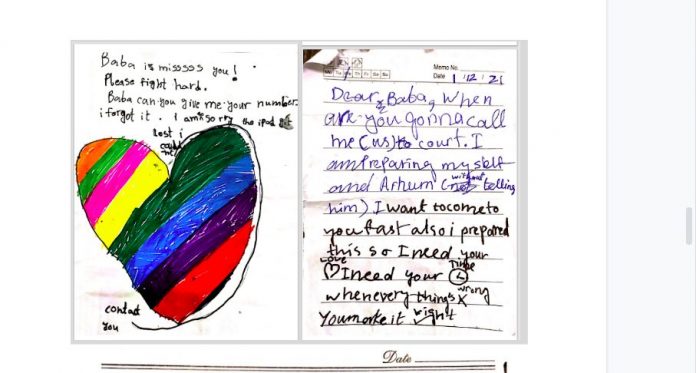 Baba is missos you!
Please fight hard.
Baba can you give me your number.
i forgot it. I am so rry the ipad
lost i
contact
You
Memo No.
Date 1 / 12 / 21
Dear, Baba, When
are you gonna call
me (us) to court. I
am Preparing my self
and Arhum (without telling
him) I want to come to
you fast also i prepared
this so I need your
Love Time
I need your
whenevery things X wrong
You make it wight
Date